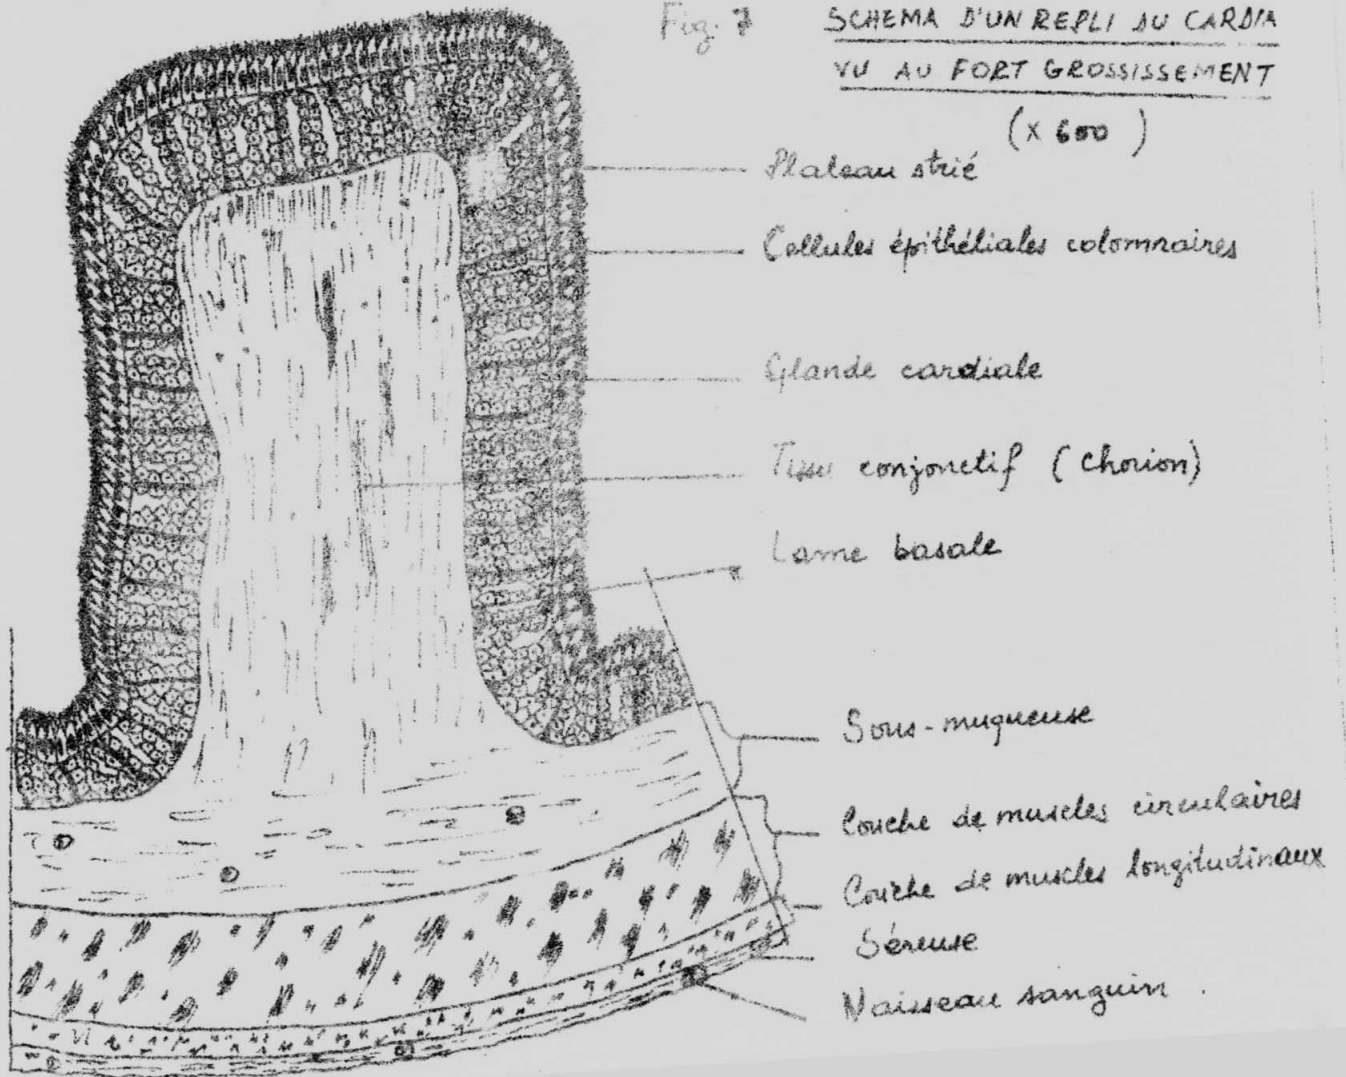 Fig. 7
SCHEMA D'UN REPLI DU CARDIA
VU AU FORT GROSSISSEMENT
(x 600)
Plateau strié
Cellules épithéliales colomnaires
Glande cardiale
Tissu conjonctif (Chorion)
Lame basale
Sous-muqueuse
Couche de muscles circulaires
Couche de muscles longitudinaux
Séreuse
Vaisseau sanguin.